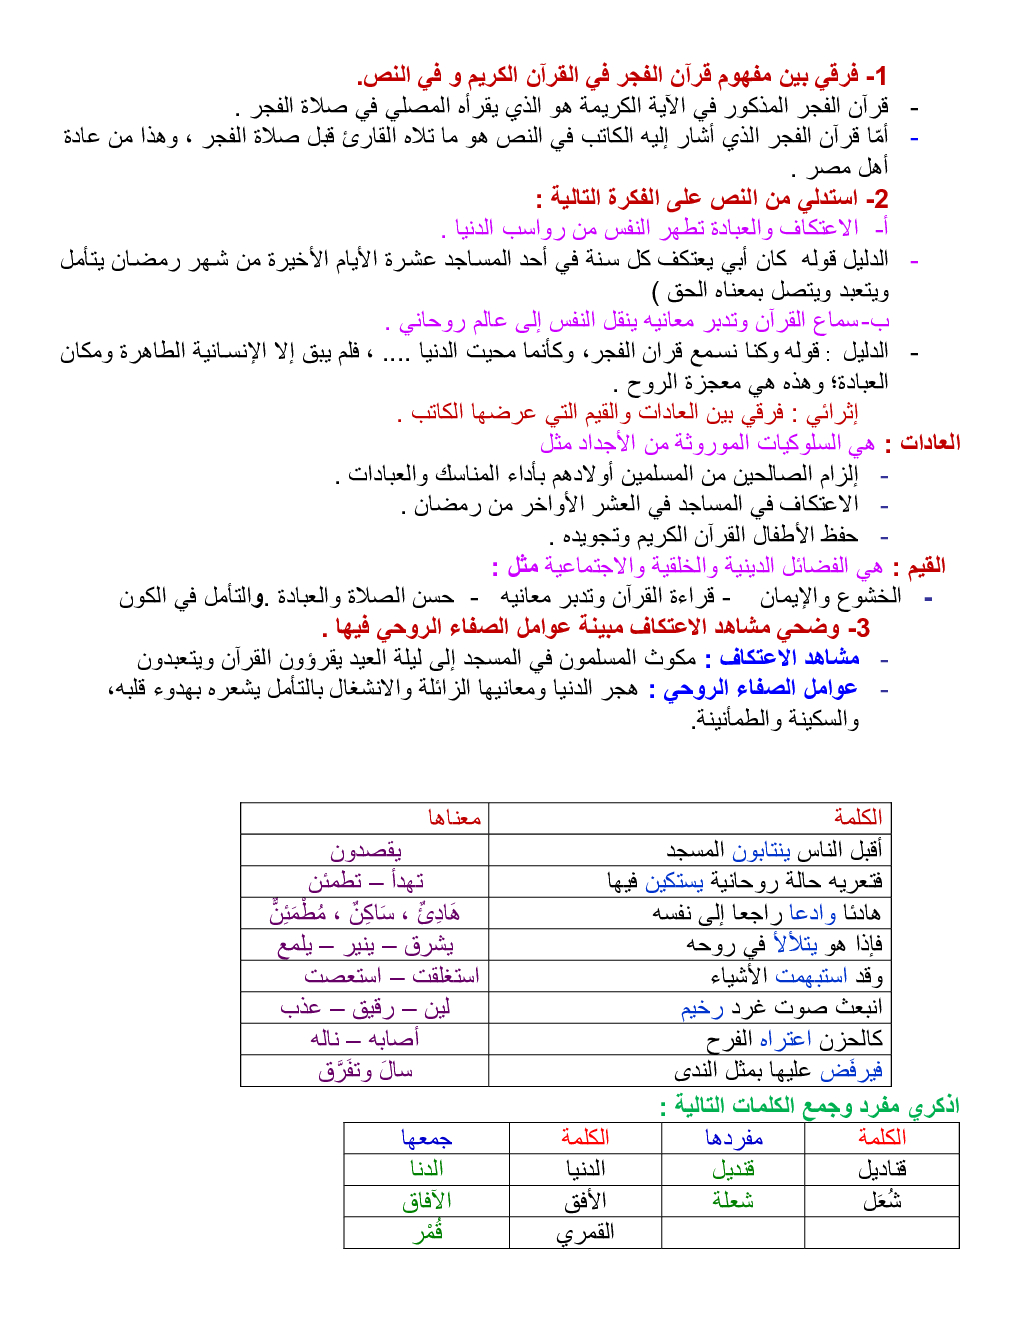 1- فرقي بين مفهوم قرآن الفجر في القرآن الكريم و في النص.
- قرآن الفجر المذكور في الآية الكريمة هو الذي يقرأه المصلي في صلاة الفجر .
- أمّا قرآن الفجر الذي أشار إليه الكاتب في النص هو ما تلاه القارئ قبل صلاة الفجر ، وهذا من عادة
أهل مصر .
2- استدلي من النص على الفكرة التالية :
أ- الاعتكاف والعبادة تطهر النفس من رواسب الدنيا .
- الدليل قوله كان أبي يعتكف كل سنة في أحد المساجد عشرة الأيام الأخيرة من شهر رمضان يتأمل
ويتعبد ويتصل بمعناه الحق )
ب- سماع القرآن وتدبر معانيه ينقل النفس إلى عالم روحاني .
- الدليل : قوله وكنا نسمع قران الفجر، وكأنما محيت الدنيا .... ، فلم يبق إلا الإنسانية الطاهرة ومكان
العبادة؛ وهذه هي معجزة الروح .
إثرائي : فرقي بين العادات والقيم التي عرضها الكاتب .
العادات : هي السلوكيات الموروثة من الأجداد مثل
- إلزام الصالحين من المسلمين أولادهم بأداء المناسك والعبادات .
- الاعتكاف في المساجد في العشر الأواخر من رمضان .
- حفظ الأطفال القرآن الكريم وتجويده .
القيم : هي الفضائل الدينية والخلقية والاجتماعية مثل :
- الخشوع والإيمان - قراءة القرآن وتدبر معانيه - حسن الصلاة والعبادة .والتأمل في الكون
3- وضحي مشاهد الاعتكاف مبينة عوامل الصفاء الروحي فيها .
- مشاهد الاعتكاف : مكوث المسلمون في المسجد إلى ليلة العيد يقرؤون القرآن ويتعبدون
- عوامل الصفاء الروحي : هجر الدنيا ومعانيها الزائلة والانشغال بالتأمل يشعره بهدوء قلبه،
والسكينة والطمأنينة.
الكلمة معناها
أقبل الناس ينتابون المسجد يقصدون
فتعريه حالة روحانية يستكين فيها تهدأ – تطمئن
هادئا وادعا راجعا إلى نفسه هَادِئٌ ، سَاكِنٌ ، مُطْمَئِنٌّ
فإذا هو يتلألأ في روحه يشرق – ينير – يلمع
وقد استبهمت الأشياء استغلقت – استعصت
انبعث صوت غرد رخيم لين – رقيق – عذب
كالحزن اعتراه الفرح أصابه – ناله
فيرفَض عليها بمثل الندى سالَ وتفَرَّق
اذكري مفرد وجمع الكلمات التالية :
الكلمة مفردها الكلمة جمعها
قناديل قنديل الدنيا الدنا
شُعَل شعلة الأفق الآفاق
القمري قُمْر